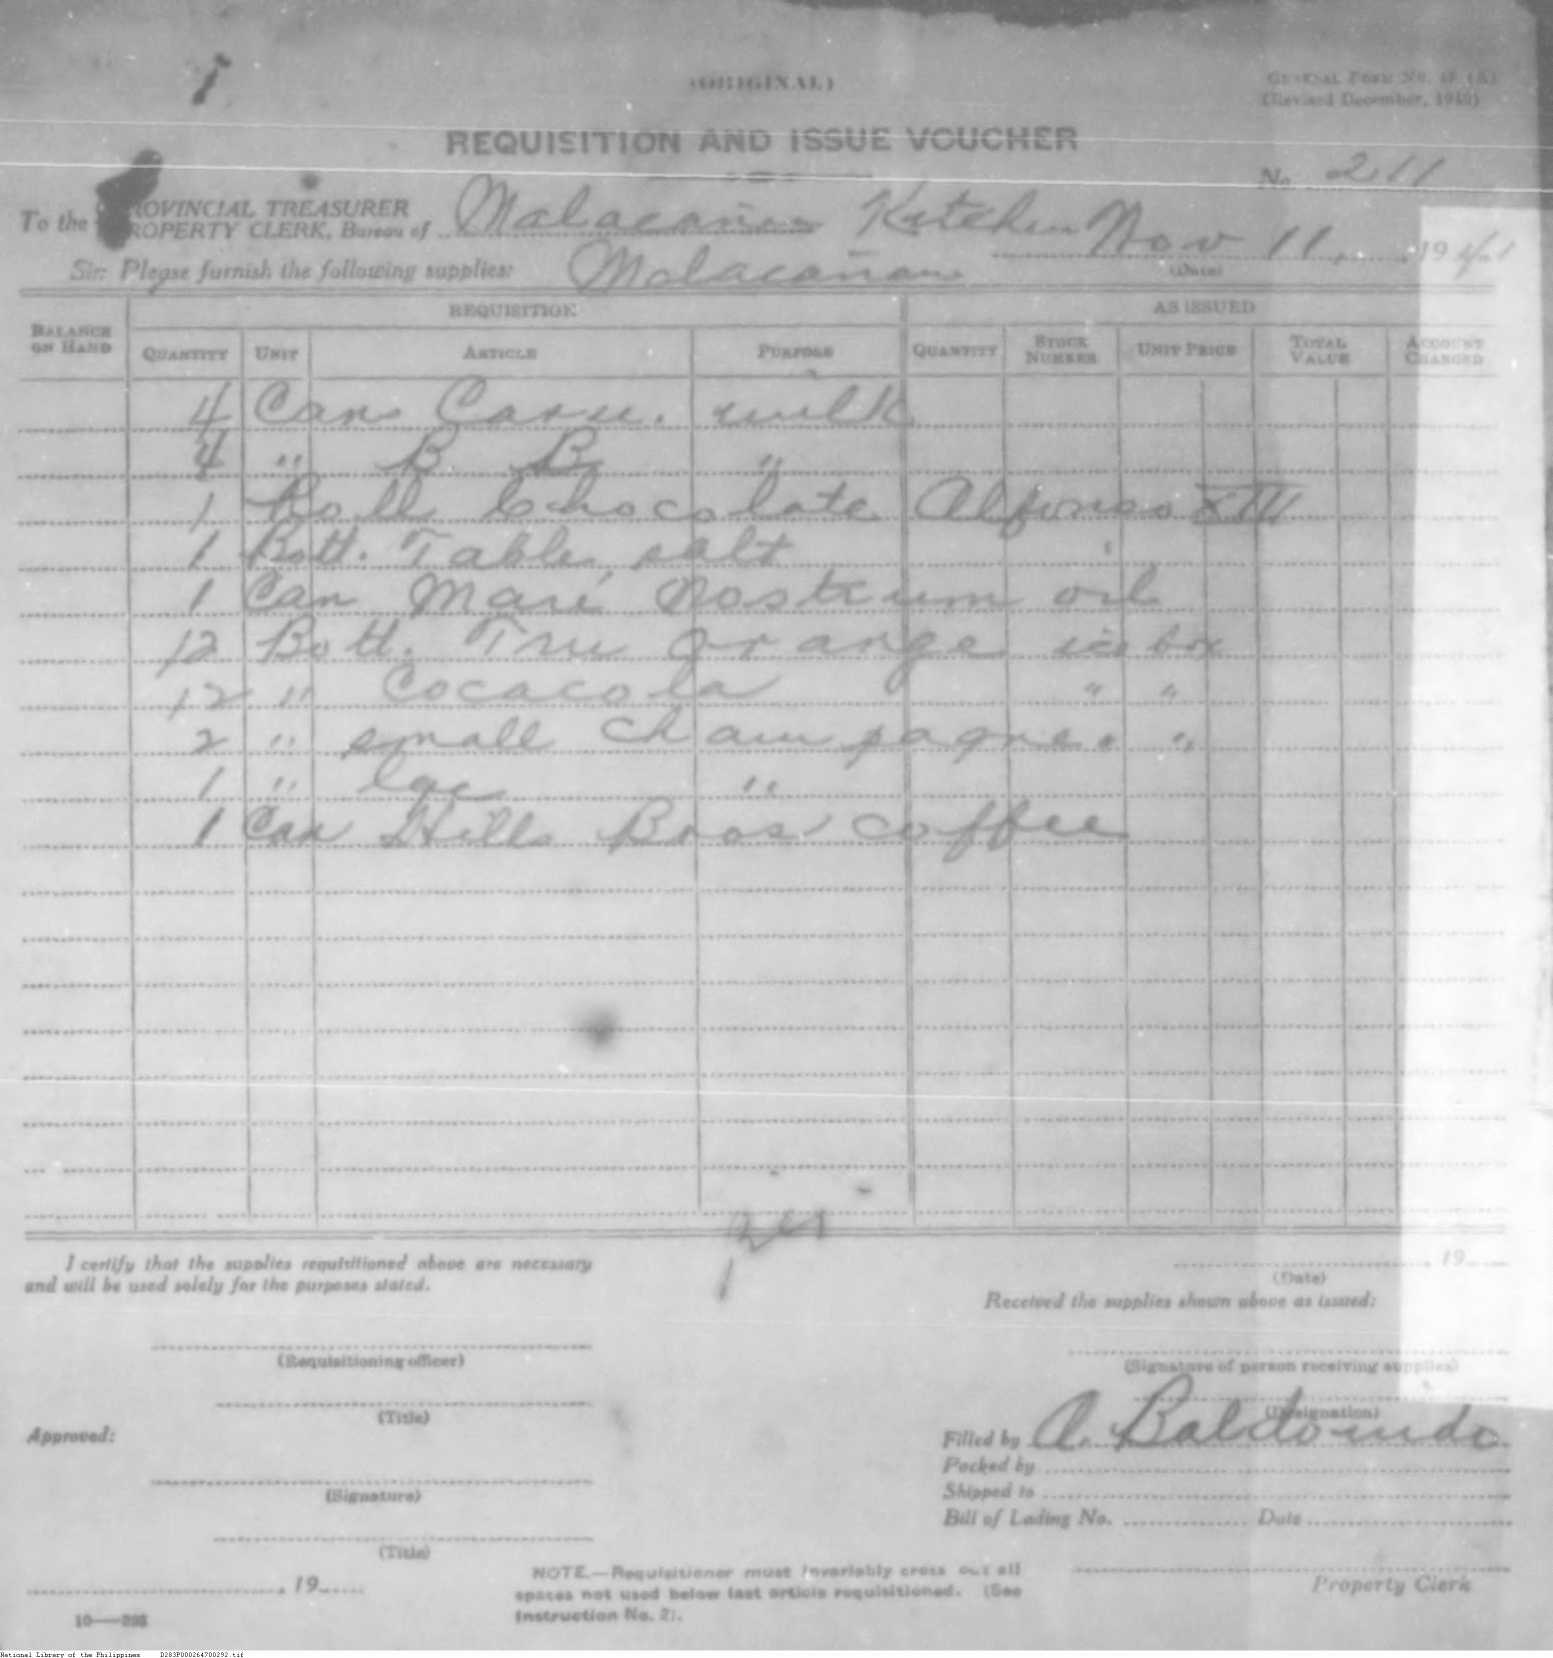 (ORIGINAL)
GENERAL FORM No. (A)
(Revised December, 1940)
REQUISITION AND ISSUE VOUCHER
No. 211
To the PROVINCIAL TREASURER
PROPERTY CLERK, Bureau of Malacañan Kitchen Nov 11, 1941
(Date)
Sir: Please furnish the following supplies: Malacañan
REQUISITION AS ISSUED
BALANCE ON HAND QUANTITY UNIT ARTICLE PURPOSE QUANTITY STOCK NUMBER UNIT PRICE TOTAL VALUE ACCOUNT CHARGED
4 Can milk
4 " B B "
1 Roll Chocolate Alfonso XIII
1 Bott. Table salt
1 Can Mari Nostrum oil
12 Bott. Tru Orange ice box
12 " Cocacola " "
2 " small champagne " "
1 " lge "
1 Can Hills Bros coffee
I certify that the supplies requisitioned above are necessary
and will be used solely for the purposes stated.
19
(Date)
Received the supplies shown above as issued:
(Requisitioning officer)
(Signature of person receiving supplies)
(Title)
(Designation)
Approved:
Filled by A. Baldomindo
Packed by
(Signature)
Shipped to
Bill of Lading No. Date
(Title)
19
NOTE.—Requisitioner must invariably cross out all
spaces not used below last article requisitioned. (See
Instruction No. 2).
Property Clerk
National Library of the Philippines D283P000264700292.tif